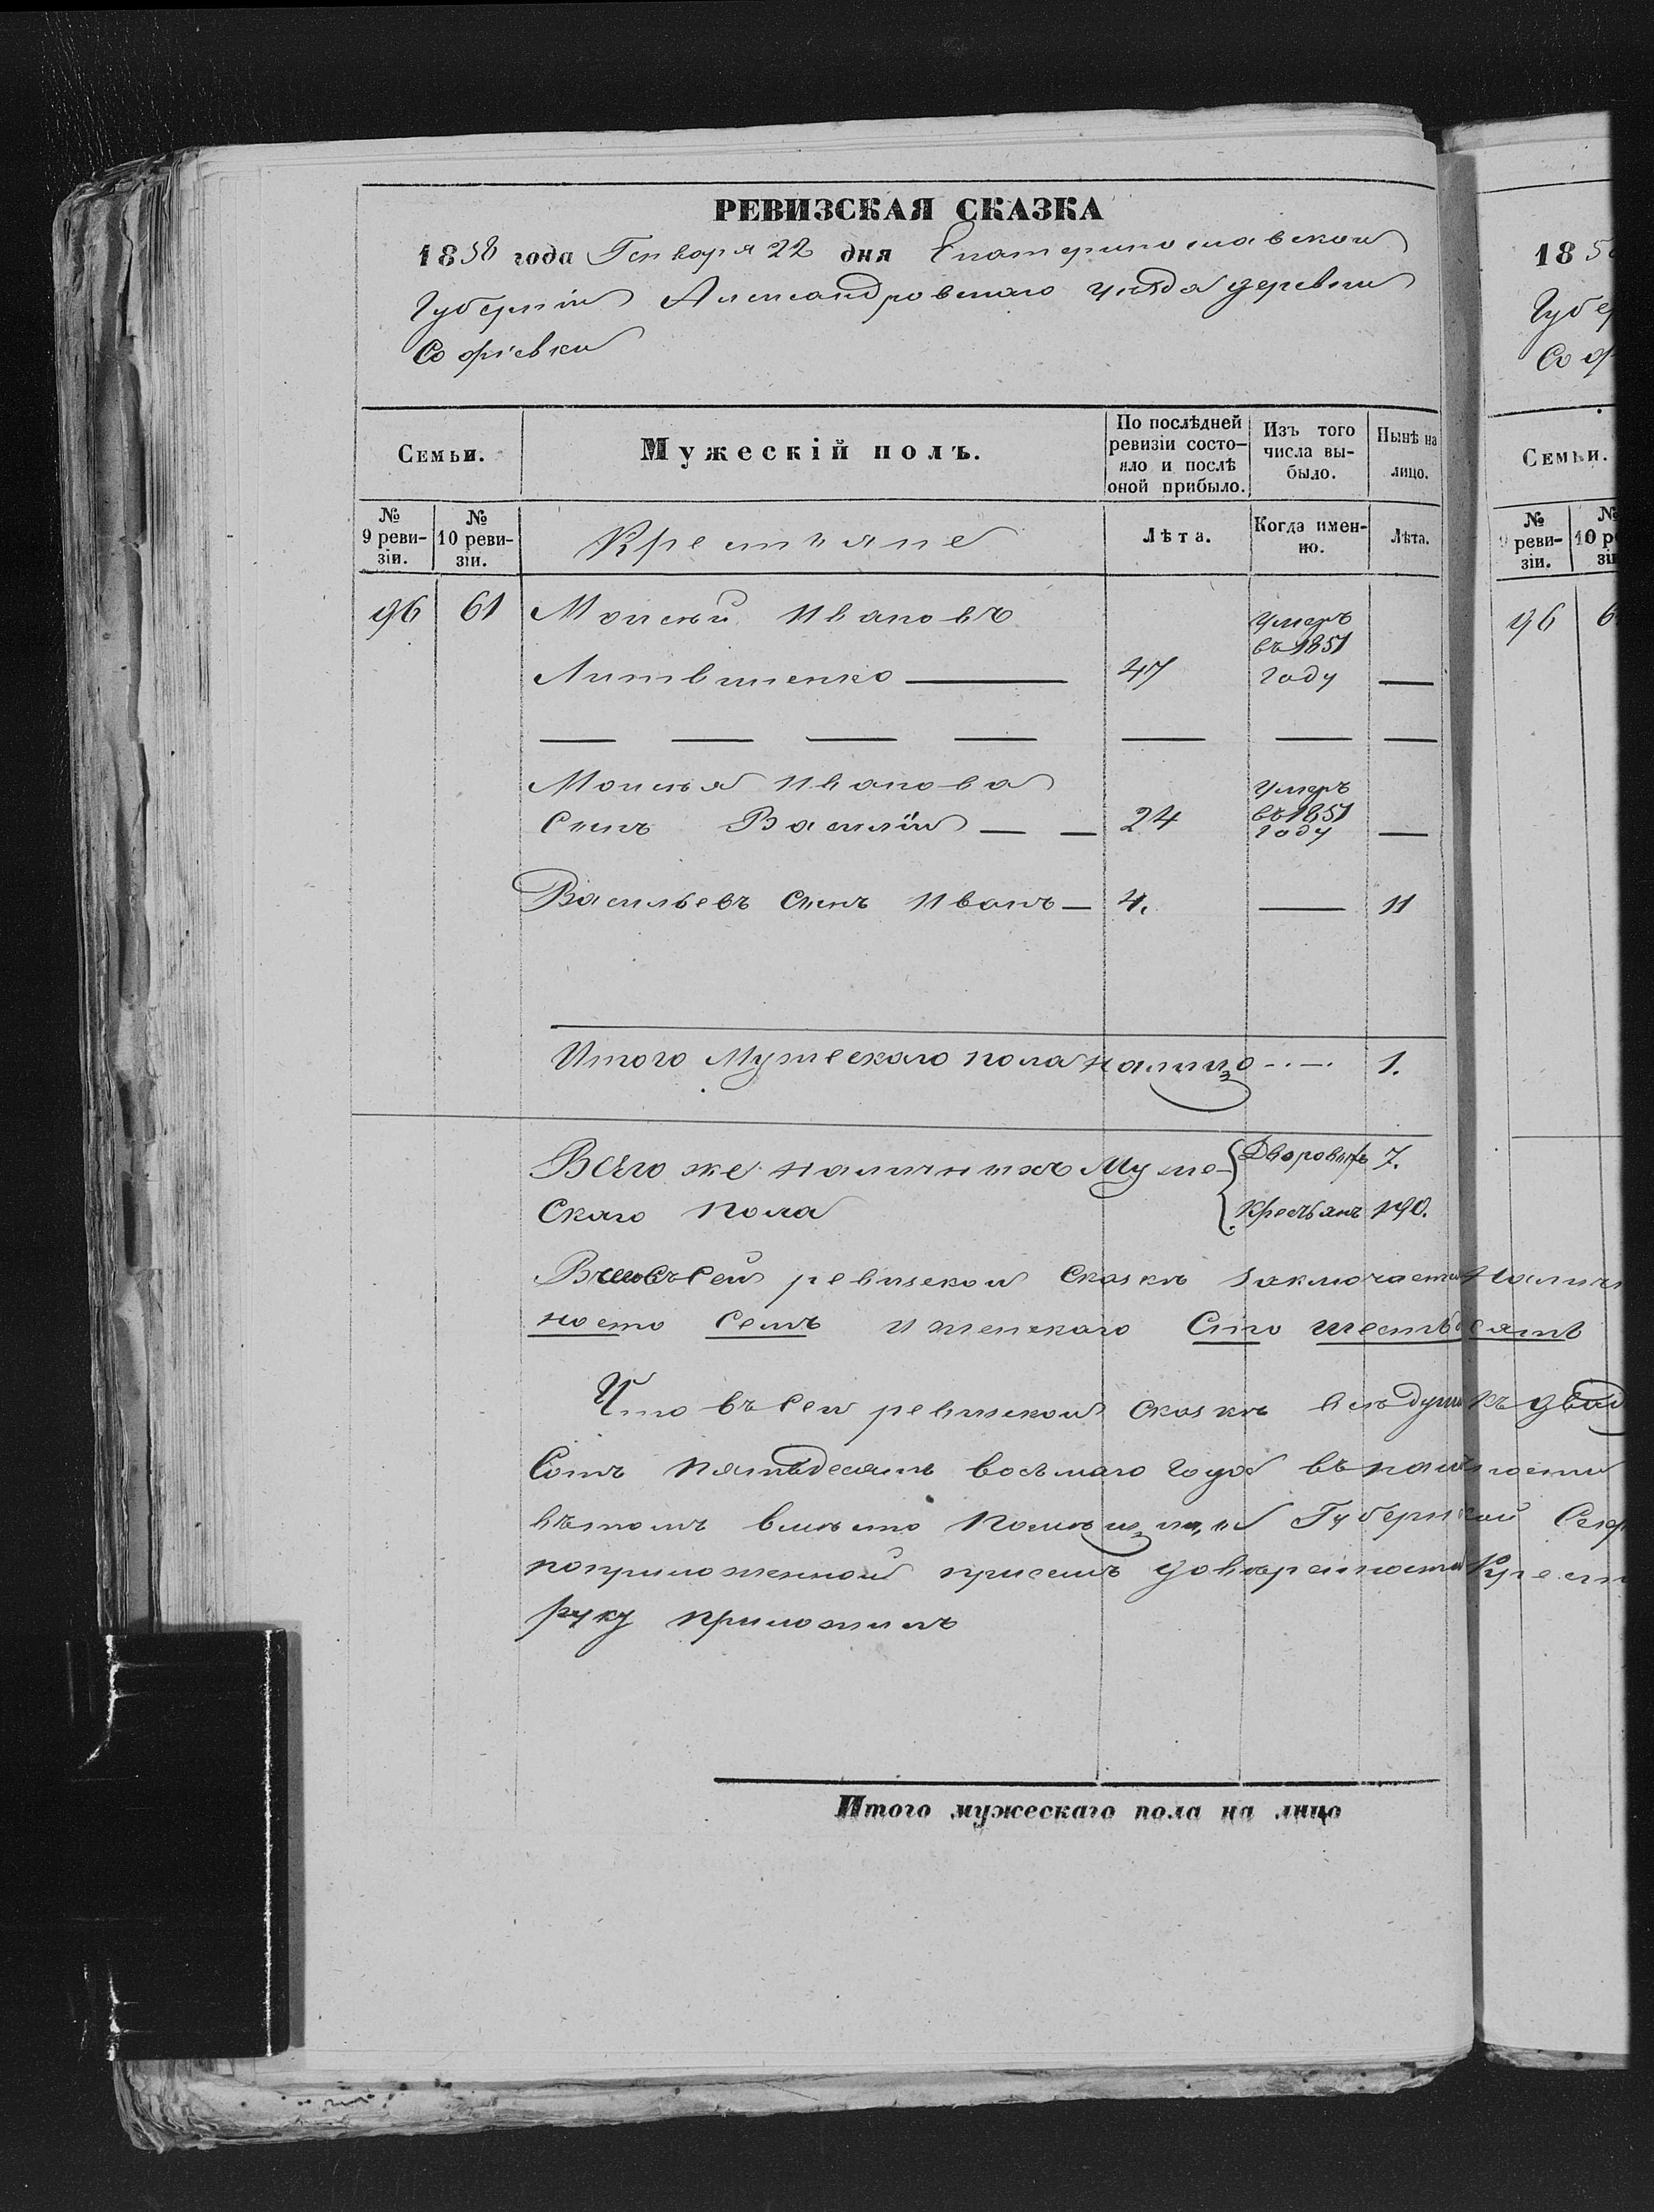 РЕВИЗСКАЯ СКАЗКА
1858 года Генваря 22 дня Екатеринославской
Губерніи Александровскаго уѣзда деревни
Софіевки
Семьи.
Мужескій полъ.
По послѣдней ревизіи состо-
яло и послѣ
оной прибыло.
Изъ того
числа вы-
было.
Нынѣ на
лицо.
№
9 реви-
зіи.
№
10 реви-
зіи.
Крестьяне
Лѣта.
Когда имен-
но.
Лѣта.
96 61 Моисѣй Ивановъ Умеръ
въ 1851
Литвиненко — 47 году —
— — — — — — —
Моисѣя Иванова Умеръ
Сынъ Василій — — 24 въ 1851 —
году
Васильевъ Сынъ Иванъ — 4. — 11
Итого Мужескаго пола налицо - . — . 1.
Всего же наличныхъ Муже- Дворовыхъ 7.
скаго пола Крестьянъ 190.
сей ревизской сказкѣ заключается
носто семь и женскаго Сто шестьдесятъ
Что въ сей ревизской сказкѣ всѣ души къ
Сотъ пятьдесятъ восьмаго года въ
вѣтомъ вмѣсто Губернской
поприложенной присемъ довѣренности
руку приложилъ
Итого мужескаго пола на лицо
18 5
Губер
Соф
Семьи.
№
9 реви-
зіи.
№
10 р
зі
96 6